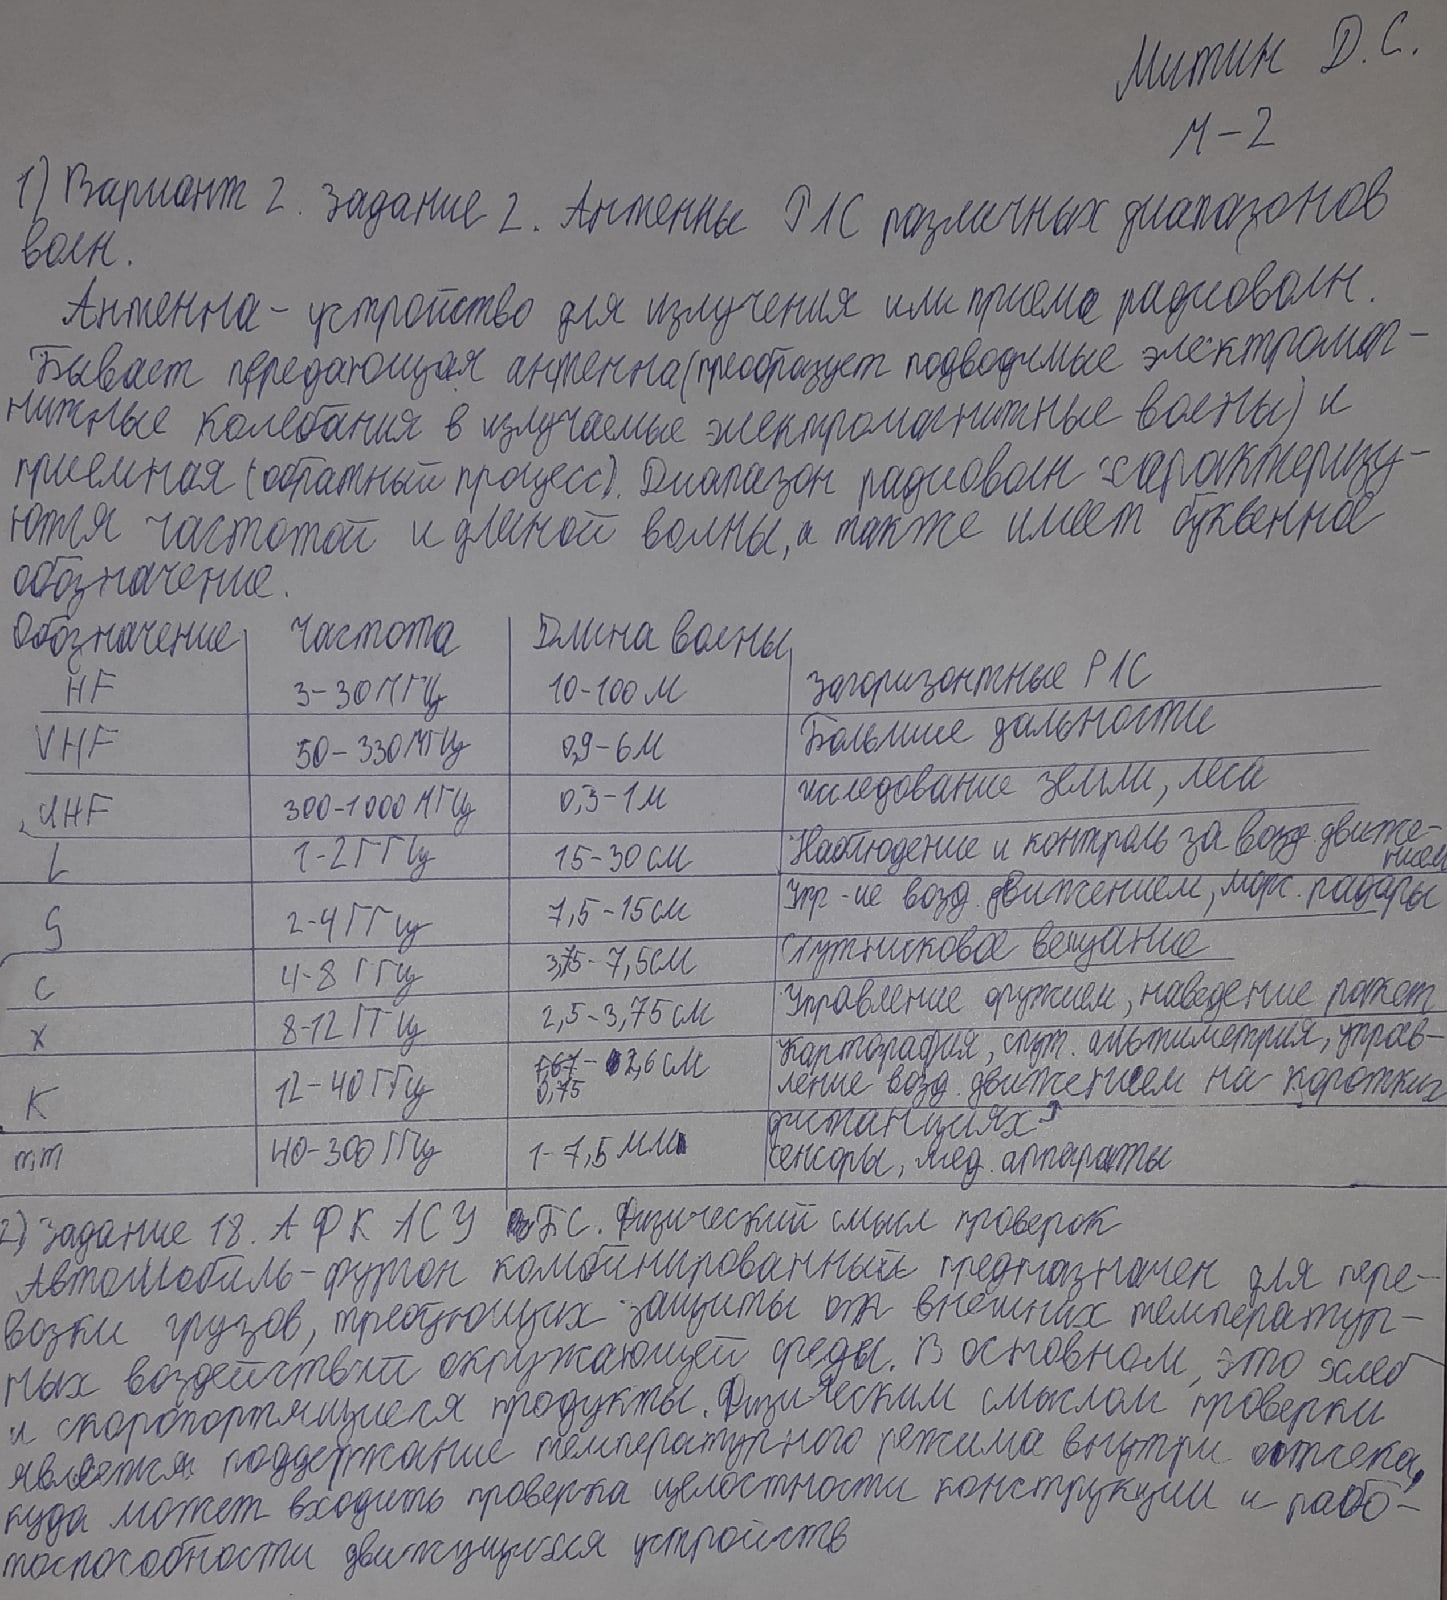 Митин Д.С.
М-2
1) Вариант 2. Задание 2. Антенны РЛС различных диапазонов
волн.
Антенна - устройство для излучения или приема радиоволн.
Бывает передающая антенна (преобразует подводимые электромаг-
нитные колебания в излучаемые электромагнитные волны) и
приемная (обратный процесс). Диапазон радиоволн характеризу-
ются частотой и длиной волны, а также имеет буквенное
обозначение.
Обозначение Частота Длина волны
HF 3-30 МГц 10-100 м Загоризонтные РЛС
VHF 50-330 МГц 0,9-6 м Большие дальности
UHF 300-1000 МГц 0,3-1 м исследование земли, леса
L 1-2 ГГц 15-30 см Наблюдение и контроль за возд. движе-
нием
S 2-4 ГГц 7,5-15 см Упр-ие возд. движением, морс. радары
C 4-8 ГГц 3,75-7,5 см Спутниковое вещание
X 8-12 ГГц 2,5-3,75 см Управление оружием, наведение ракет
K 12-40 ГГц 0,75 - 2,6 см Картография, спут. альтиметрия, управ-
ление возд. движением на коротких
дистанциях
mm 40-300 ГГц 1-7,5 мм сенсоры, мед. аппараты
2) Задание 18. АФК ЛСУ БС. Физический смысл проверок
Автомобиль-фургон комбинированный предназначен для пере-
возки грузов, требующих защиты от внешних температур-
ных воздействий окружающей среды. В основном, это хлеб
и скоропортящиеся продукты. Физическим смыслом проверки
является поддержание температурного режима внутри отсека,
куда может входить проверка целостности конструкции и рабо-
тоспособности движущихся устройств